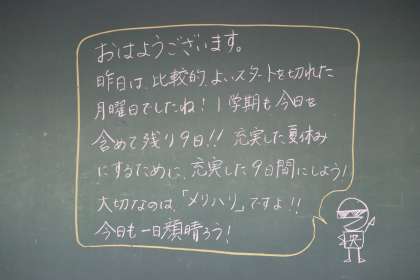 おはようございます。
昨日は、比較的、よいスタートを切れた
月曜日でしたね！１学期も今日を
含めて残り９日!! 充実した夏休み
にするために、充実した９日間にしよう！
大切なのは、「メリハリ」ですよ!!
今日も一日顔晴ろう！